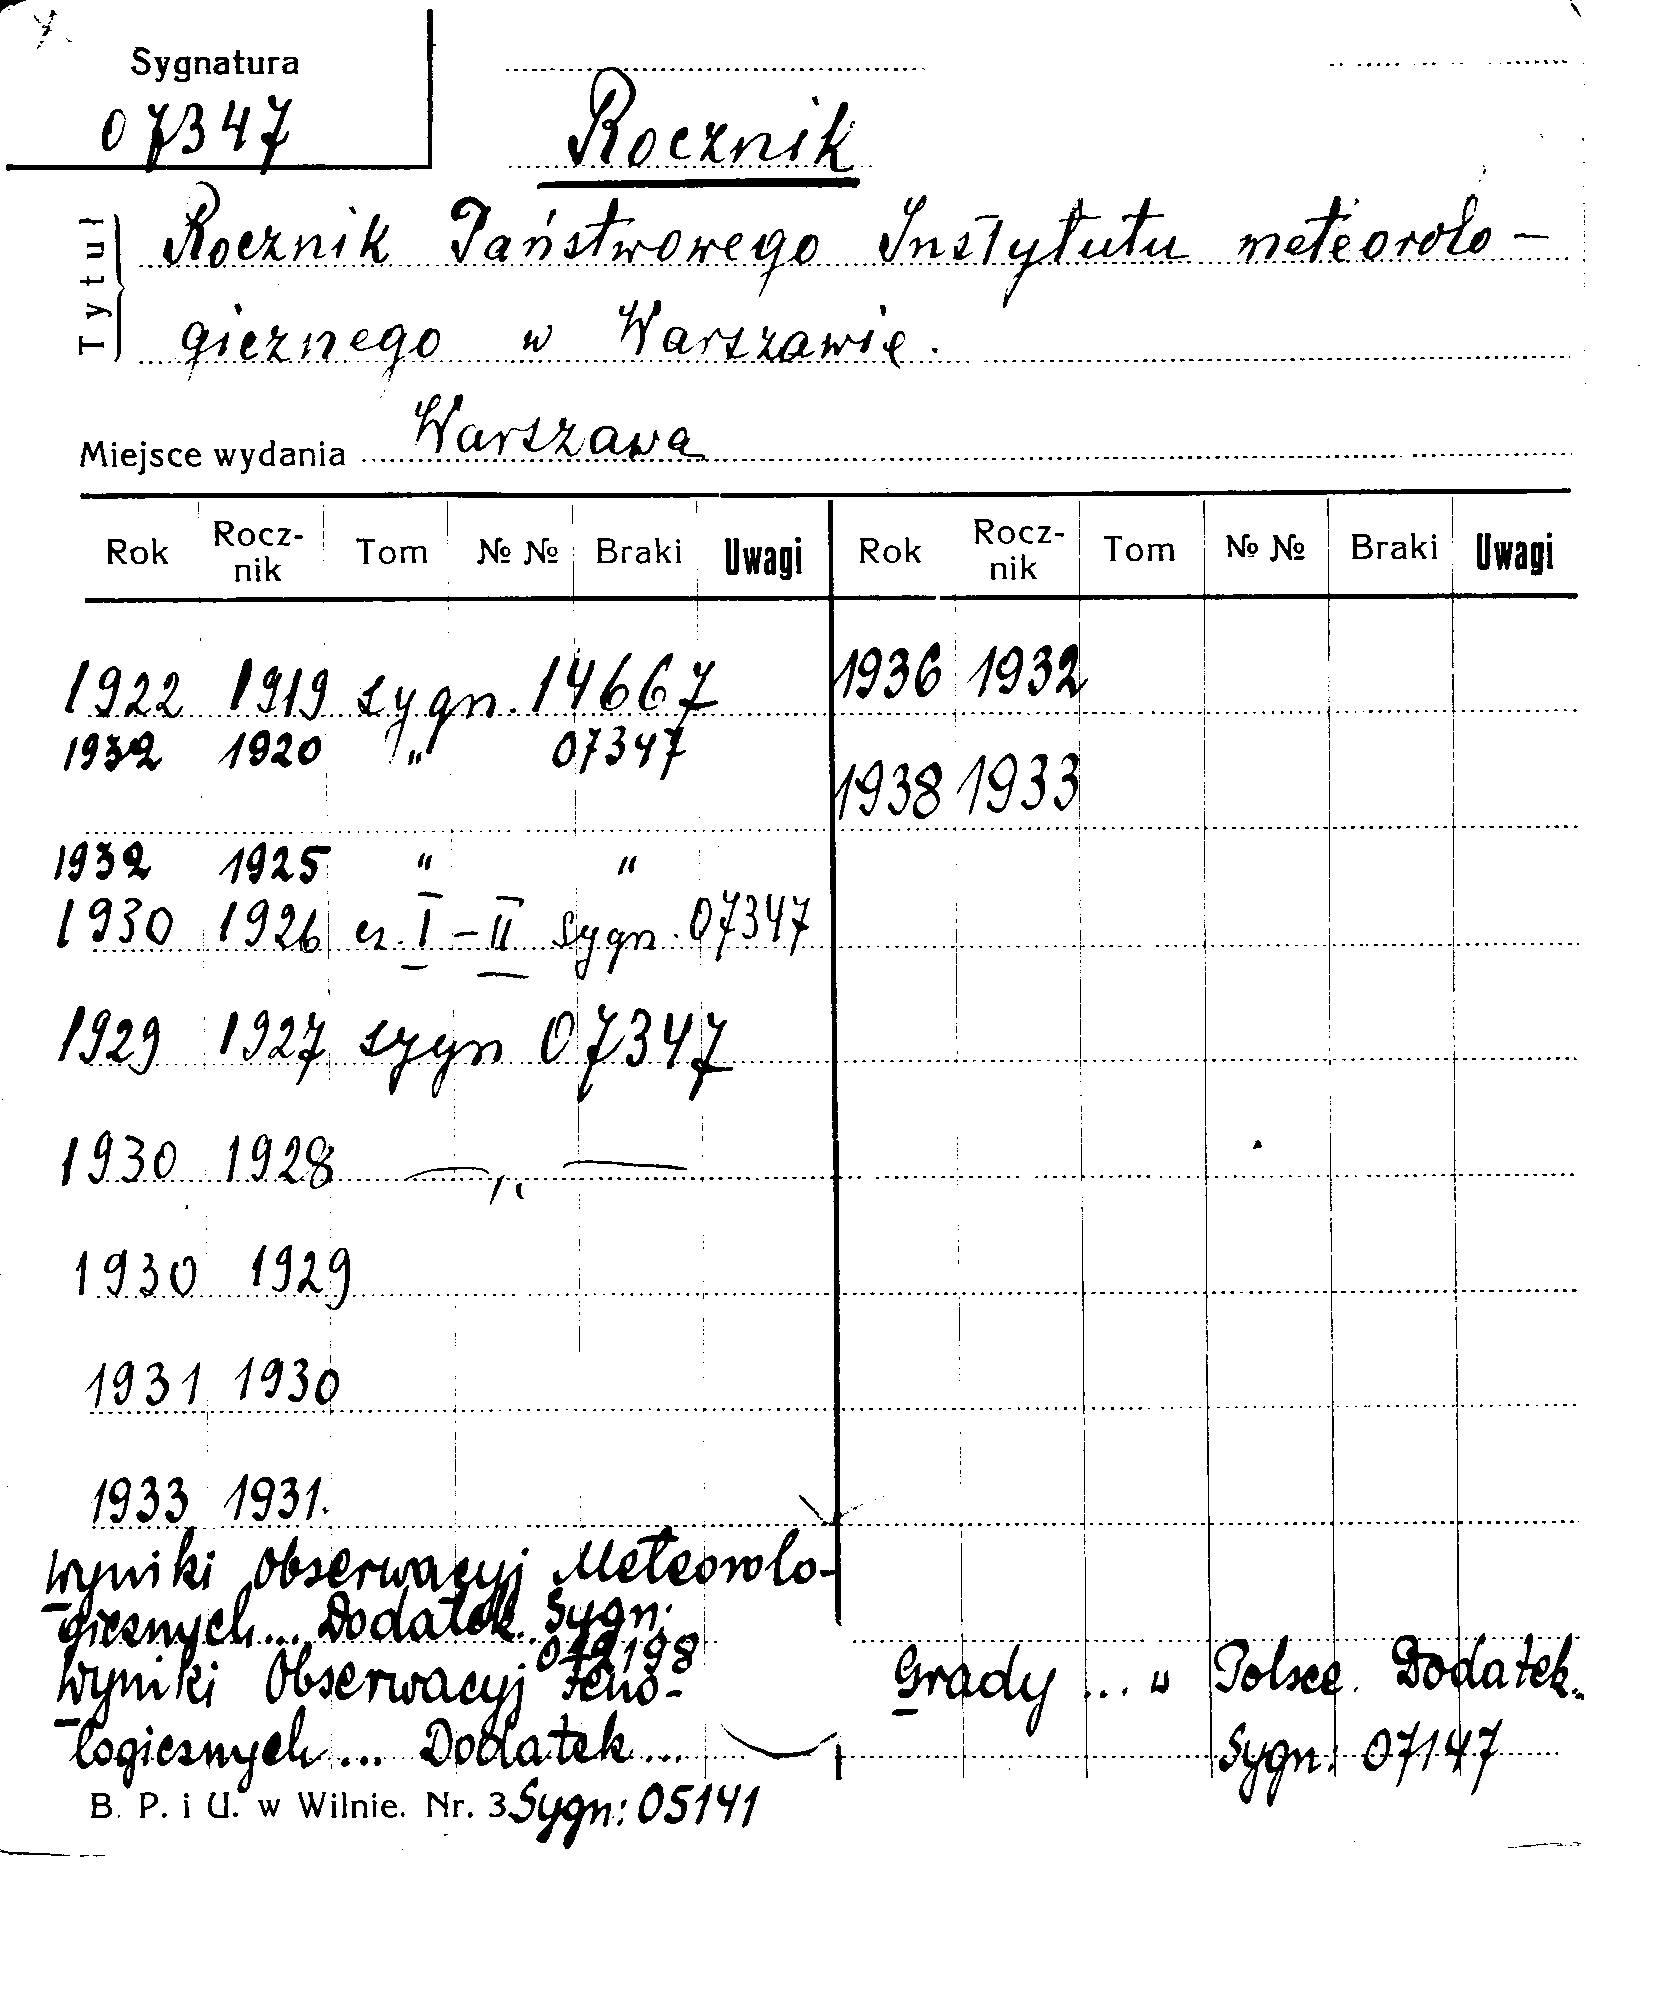 Sygnatura
07347
Rocznik
Tytuł
Rocznik Państwowego Instytutu meteorolo-
gicznego w Warszawie.
Miejsce wydania Warszawa
Rok Rocz-nik Tom № № Braki Uwagi Rok Rocz-nik Tom № № Braki Uwagi
1922 1919 sygn. 14667 1936 1932
1932 1920 " 07347
1938 1933
1932 1925 " "
1930 1926 cz. I - II sygn. 07347
1929 1927 sygn 07347
1930 1928 — " —
1930 1929
1931 1930
1933 1931.
Wyniki Obserwacyj Meteorolo-
gicznych... Dodatek. Sygn:
Wyniki Obserwacyj Feno-
logicznych... Dodatek...
Grady ... w Polsce. Dodatek..
Sygn: 07147
B. P. i U. w Wilnie. Nr. 3 Sygn: 05141